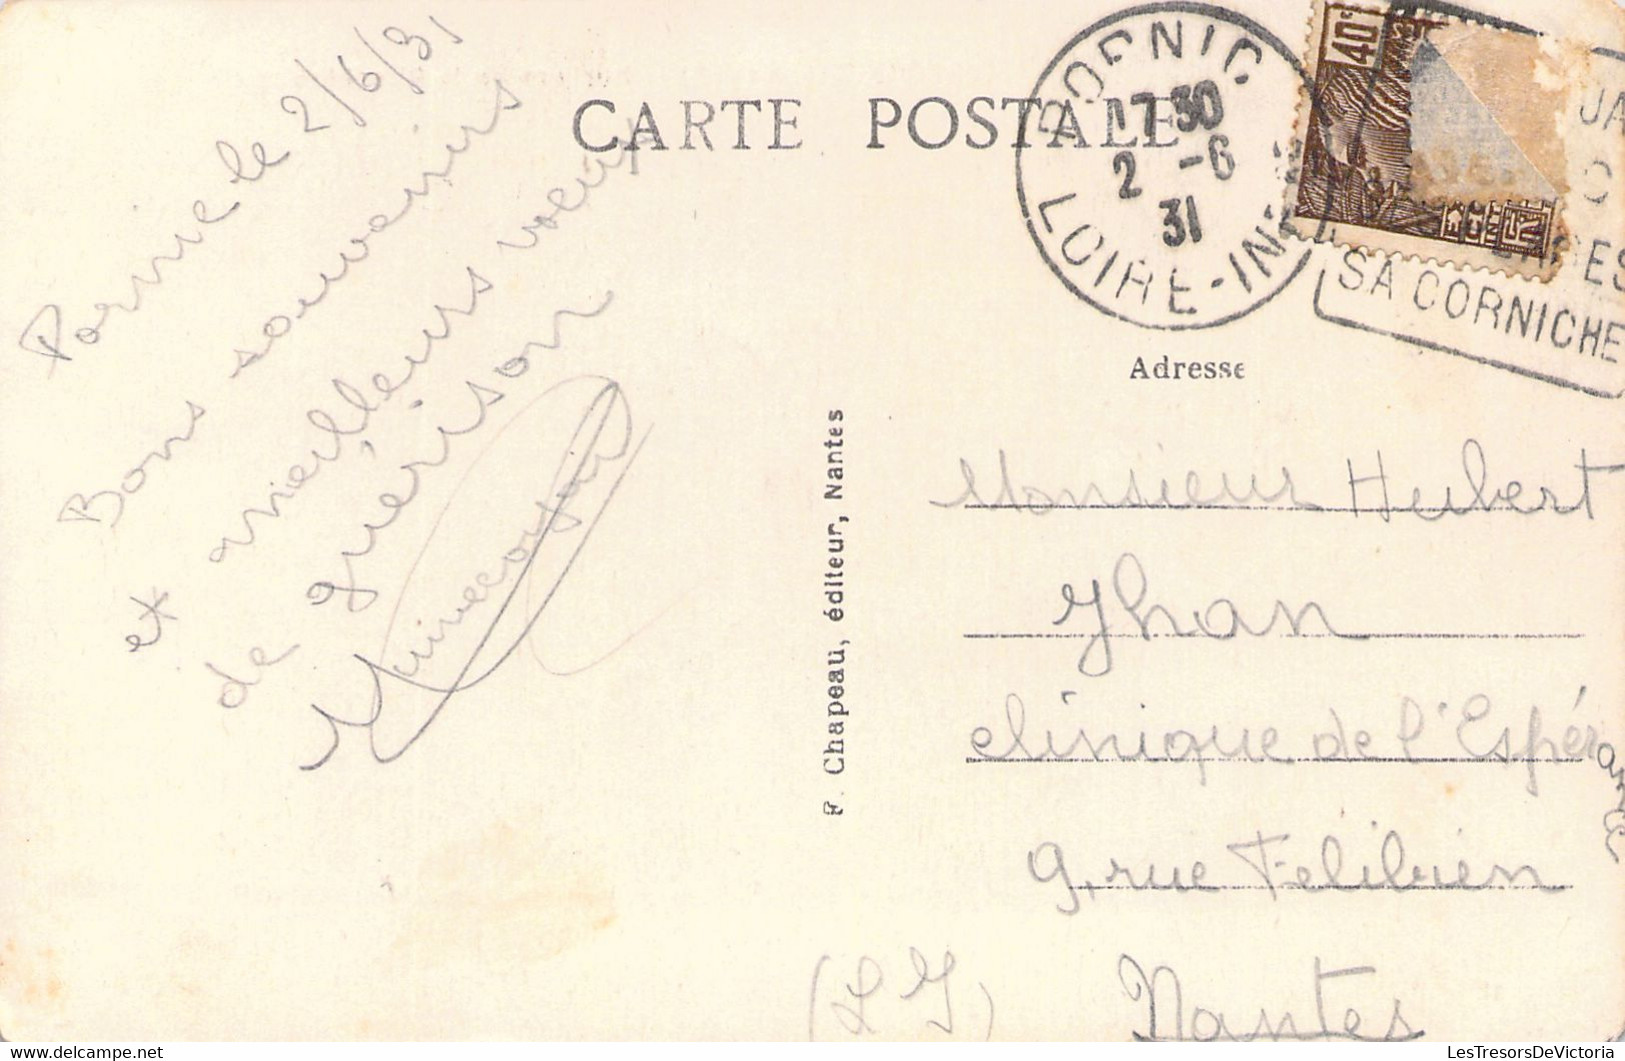 CARTE POSTALE
Pornic le 2/6/31
Bons souvenirs
et meilleurs voeux
de guérison
F. Chapeau, éditeur, Nantes
PORNIC
17 30
2 -6
31
LOIRE-INF
40c
SA CORNICHE
Adresse
Monsieur Hubert
Jhan
clinique de l'Espérance
9, rue Félibien
(L I) Nantes
LesTresorsDeVictoria